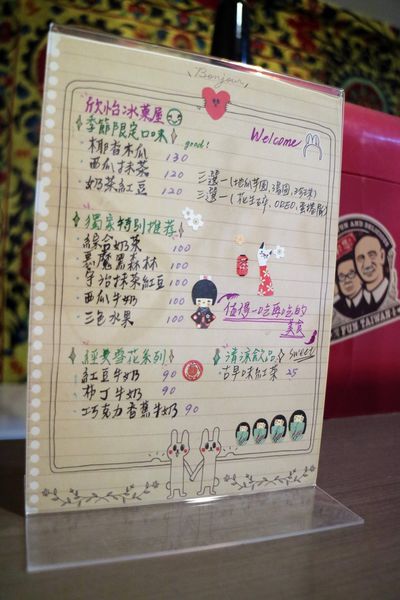 Bonjour
欣怡冰菓屋
Welcome
季節限定口味 good!
椰香木瓜 130
西瓜抹茶 120 三選一(地瓜芋圓,湯圓,珍珠)
奶茶紅豆 120 三選一(花生碎,OREO,蛋捲屑)
獨家特別推荐
綜合奶茶 100
惡魔黑森林 100
宇治抹茶紅豆 100
西瓜牛奶 100
三色水果 100
值得一吃再吃的
美食
經典雪花系列
紅豆牛奶 90
布丁牛奶 90
巧克力香蕉牛奶 90
清涼飲品 sweet
古早味紅茶 25
FUN TAIWAN